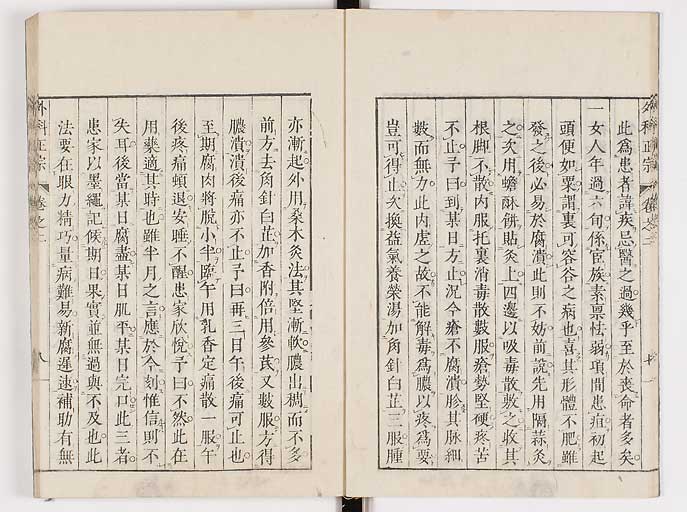 此爲患者諱疾忌醫之過幾乎至於喪命者多矣
一女人年過六旬係宦族素稟怯弱項間患疽初起
頭便如粟謂裏可容谷之病也喜其形體不肥雖
發之後必易於腐潰此則不妨前説先用隔蒜灸
之次用蟾酥餅貼灸上四邊以吸毒散敷之收其
根脚不散内服托裏消毒散數服瘡勢堅硬疼苦
不止予曰到某日方止況今瘡不腐潰胗其脉細
數而無力此内虚之故不能解毒爲膿以疼爲要
豈可得止次換益氣養榮湯加角針白芷三服腫
外科正宗 卷之二
亦漸起外用桑木灸法其堅漸軟膿出稠而不多
前方去角針白芷加香附倍用參茋又數服方得
膿潰潰後痛亦不止予曰再三日午後痛可止也
至期腐肉將脱小半臨午用乳香定痛散一服午
後疼痛頓退安睡不醒患家欣悅予曰不然此在
用藥適其時也雖半月之言應於今刻惟信則不
失耳後當某日腐盡某日肌平某日完口此三者
患家以墨繩記候期日果實並無過與不及也此
法要在眼力精巧量病難易新腐遲速補助有無
外科正宗 卷之二 八